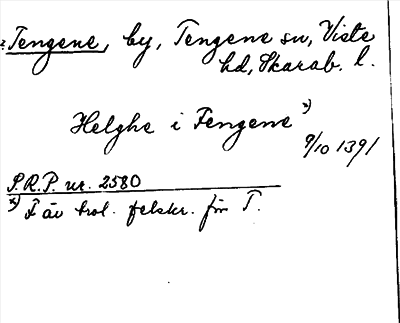 Tengene, by, Tengene sn, Viste
hd, Skarab. l.
Helghe i Fengene x)
9/10 1391
S.R.P. nr. 2580
x) F är trol. felskr. för T.